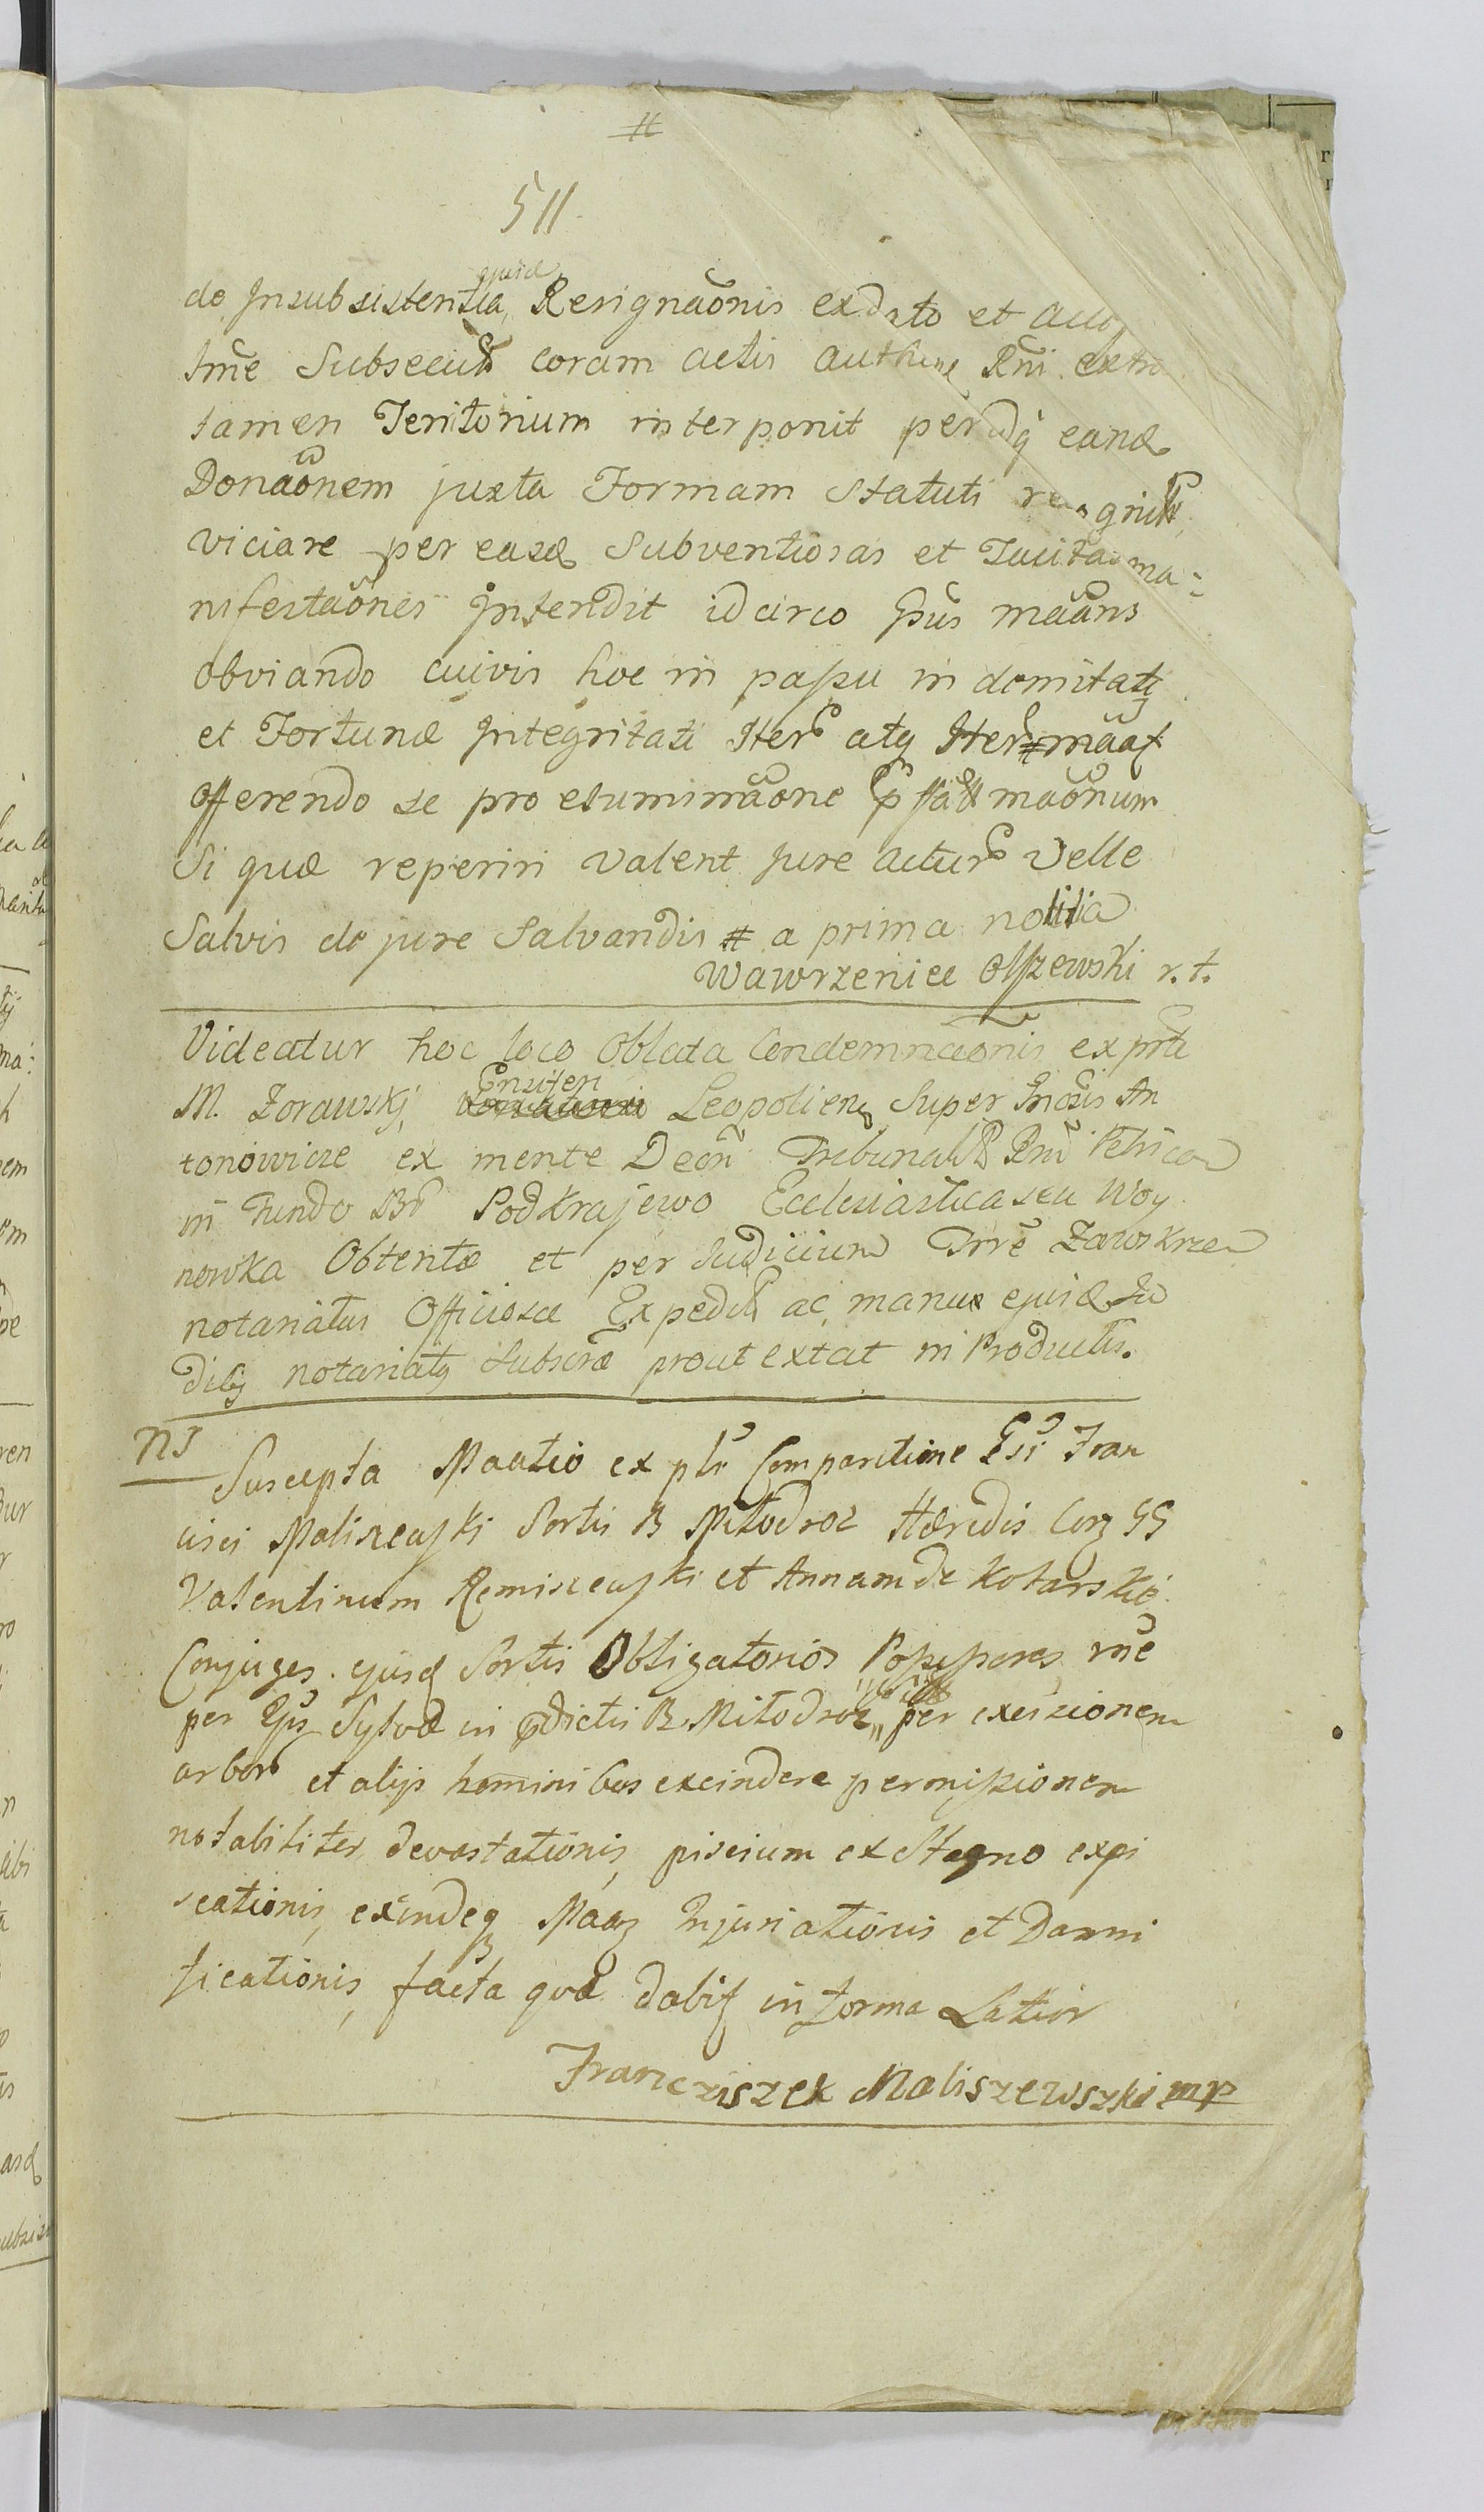 #
511.
de Insubsistentia ejusd Resignaõnis exdsto et
tme Subsecut coram actis Authen Rñi extra
tamen Teritorium interponit perindq eand
Donaõnem juxta Formam Statuti
viciare per easd Subventiosas et Tacitas ma:
nifestaõnes Intendit idcirco Ipũs mãans
obviando cuivis hoc in passu indomitati
et Fortunæ Integritati Iter atq Iter # mãat
offerendo se pro eluminãone maõnum
Si quæ reperiri valent jure actur velle
Salvis de jure Salvandis # a prima notitia
Wawrzeniec Olszewski r. t.
Videatur hoc loco Oblata Condemnaõnis ex prte
M. Zorawskj Ensiferi Leopolien Super Gnosis An
tonowicze ex mente Decri Tribunal Rni Petrico
in Fundo Br Podkrajewo Ecclesiastica seu Woy
nowka Obtentæ et per Judicium Trre Zawskrzen
notariatus Officiosæ Expedit ac manu ejusd Ju
dicij notariatq Subscræ prout extat in Productis.
NJ
Suscepta Maatio ex ptr Comparitione Gsi Fran
cisci Maliszewski Sortis B Miłodroz Hæredis Corz GG
Valentinum Remiszewski et Annam de Kotarskie
Conjuges ejusd Sortis Obligatorios Possessores rñe
per Eos Sylvæ in pdictis B. Miłodroz per excisionem
arbor et alijs hominibus excindere permissionem
notabiliter devastationis, piscium ex Stagno expi
scationis, exindeq Maaz Injuriationis et Damni
ficationis facta quæ dabit in forma Latior
Franciszek Maliszewszki mp